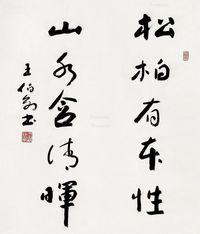 松柏有本性
山水含清暉
王伯敏书